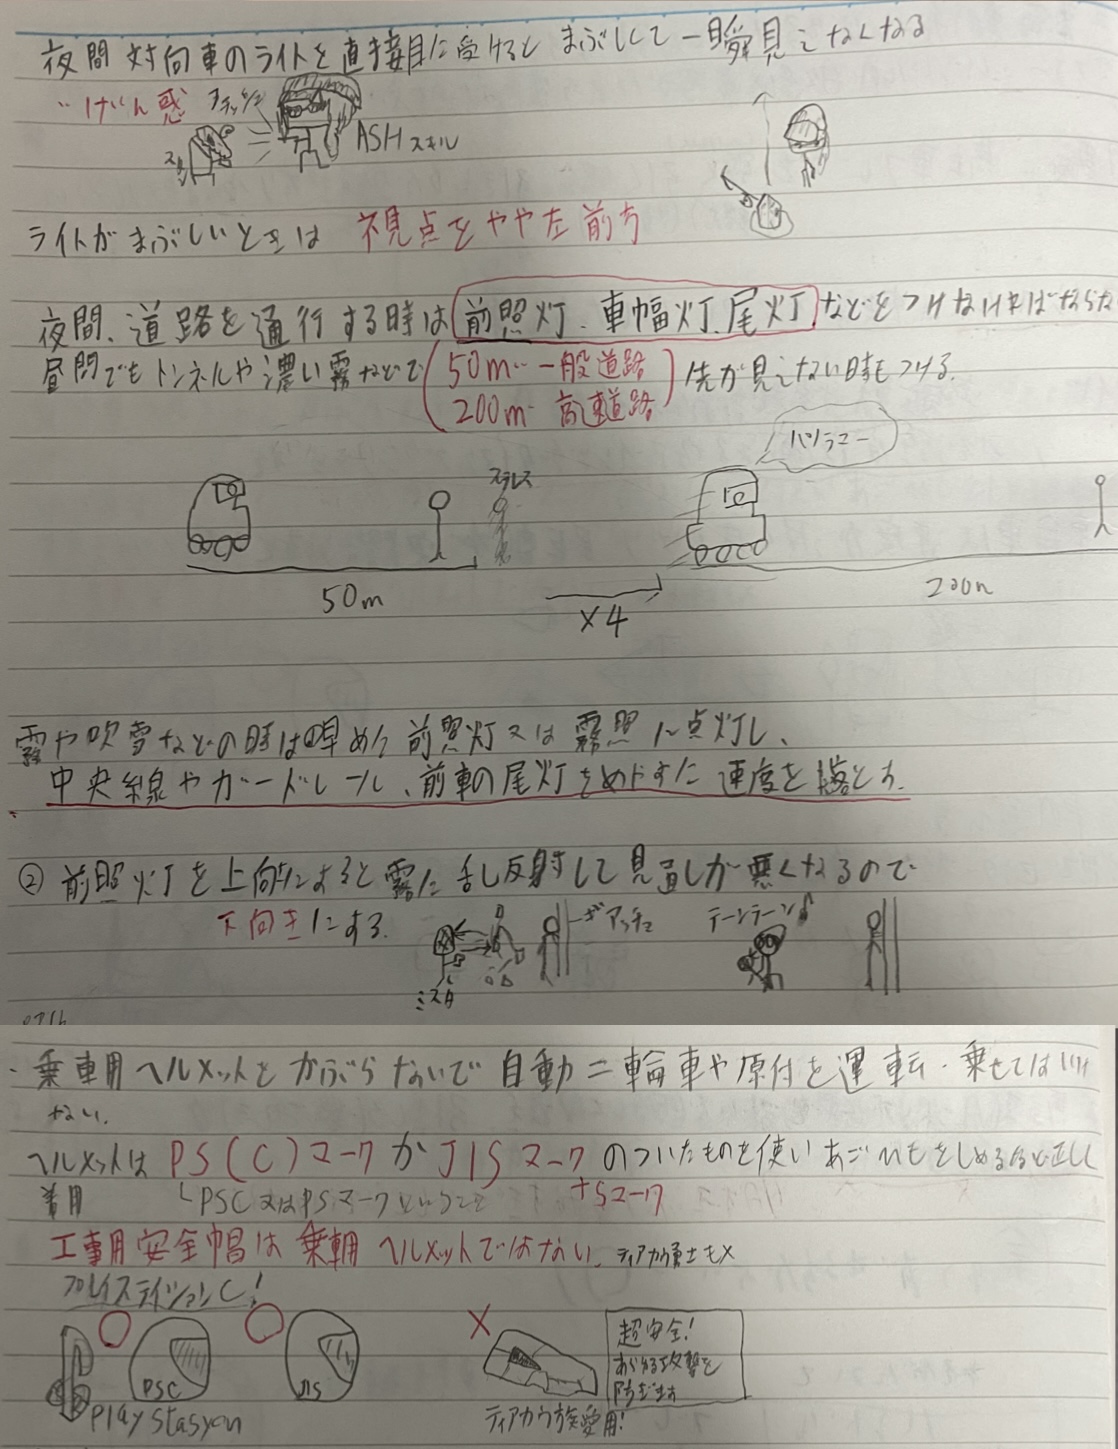 夜間 対向車のライトを直接目に受けると まぶしくて一瞬見えなくなる
げん惑
ASHスキル
ライトがまぶしいときは 視点をやや左前方
夜間、道路を通行する時は前照灯、車幅灯、尾灯などをつけなければならな
昼間でもトンネルや濃い霧などで(50m…一般道路 先が見えない時もつける.
200m…高速道路)
ステルス
50m
×4
200m
霧や吹雪などの時は早めに前照灯又は霧照に点灯し、
中央線やガードレール、前車の尾灯をめやすに 速度を落とす.
② 前照灯を上向きにすると霧に乱反射して見通しが悪くなるので
下向きにする.
テーンテーン♪
ミスタ
・乗車用ヘルメットをかぶらないで自動二輪車や原付を運転・乗せてはいけ
ない.
ヘルメットは PS(C)マークかJISマークのついたものを使いあごひもをしめるなど正しく
着用 └PSC又はPSマークということ +Sマーク
工事用安全帽は乗車用ヘルメットではない. ティアカウ勇士も×
プレイステイションC!
PSC
JIS
×
超安全!
あらゆる攻撃を
防ぎます
Play stasyon
ティアカウ族愛用!